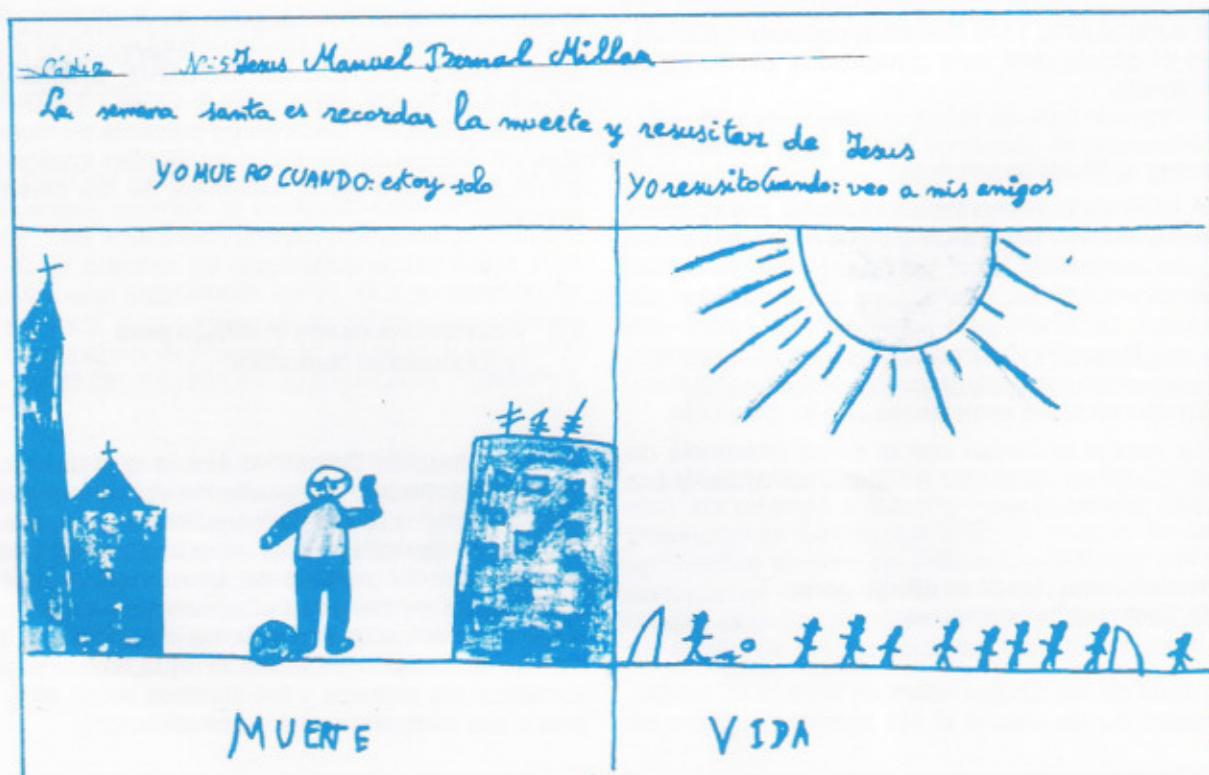 Cádiz N-5 Jesus Manuel Bernal Millan
La semana santa es recordar la muerte y resusitar de Jesus
YO MUERO CUANDO: estoy solo
Yo resusito Cuando: veo a mis amigos
MUERTE
VIDA